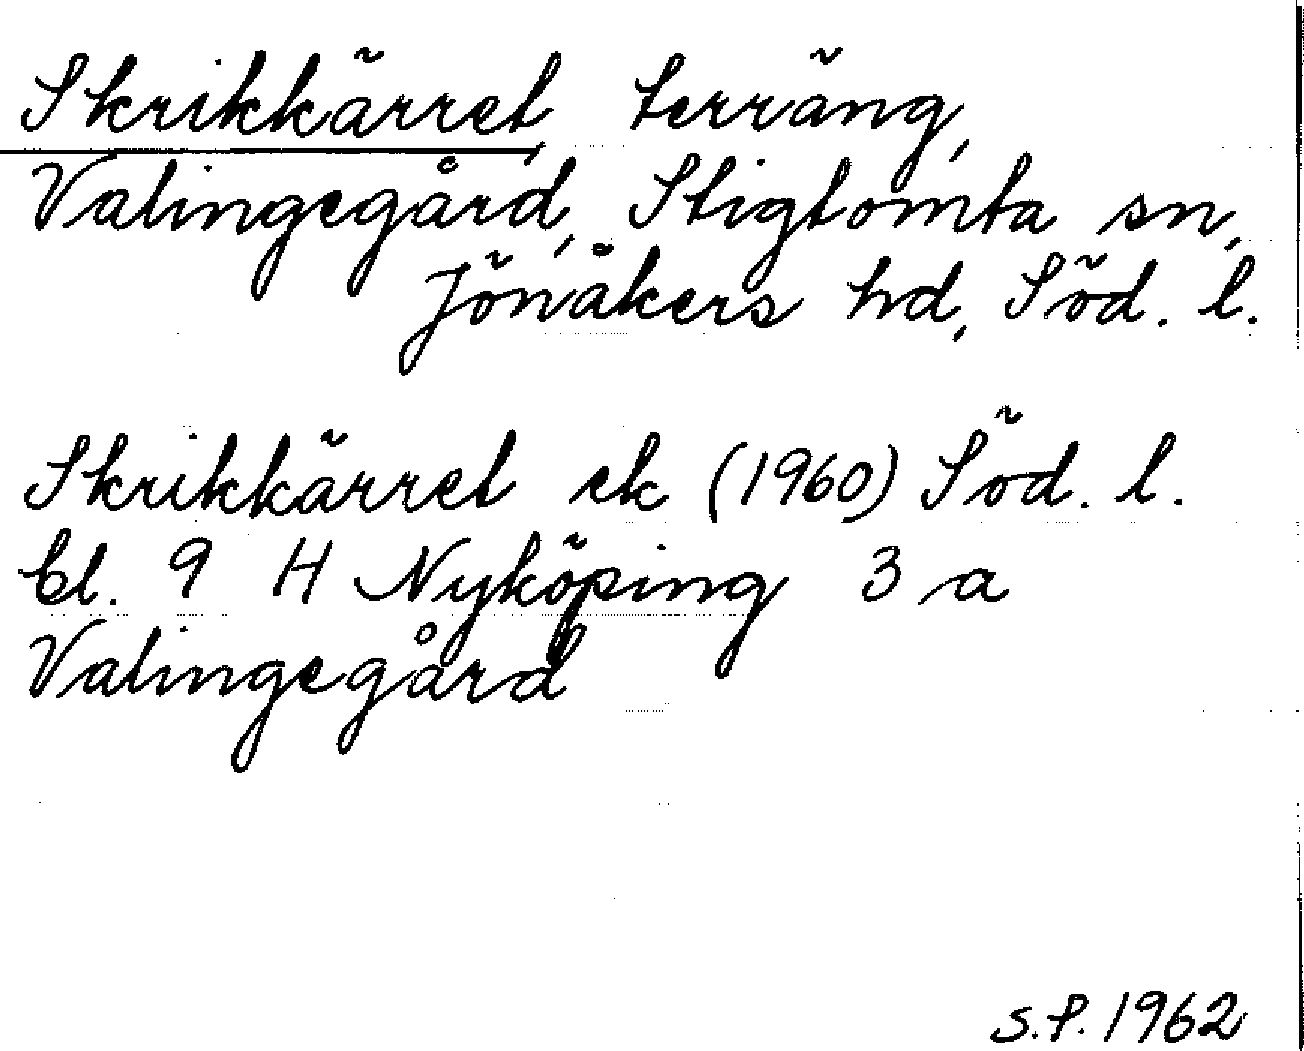 Skrikkärret, terräng,
Valingegård, Stigtomta sn,
Jönåkers hd, Söd. l.
Skrikkärret ek (1960) Söd. l.
bl. 9 H Nyköping 3 a
Valingegård
S.P. 1962